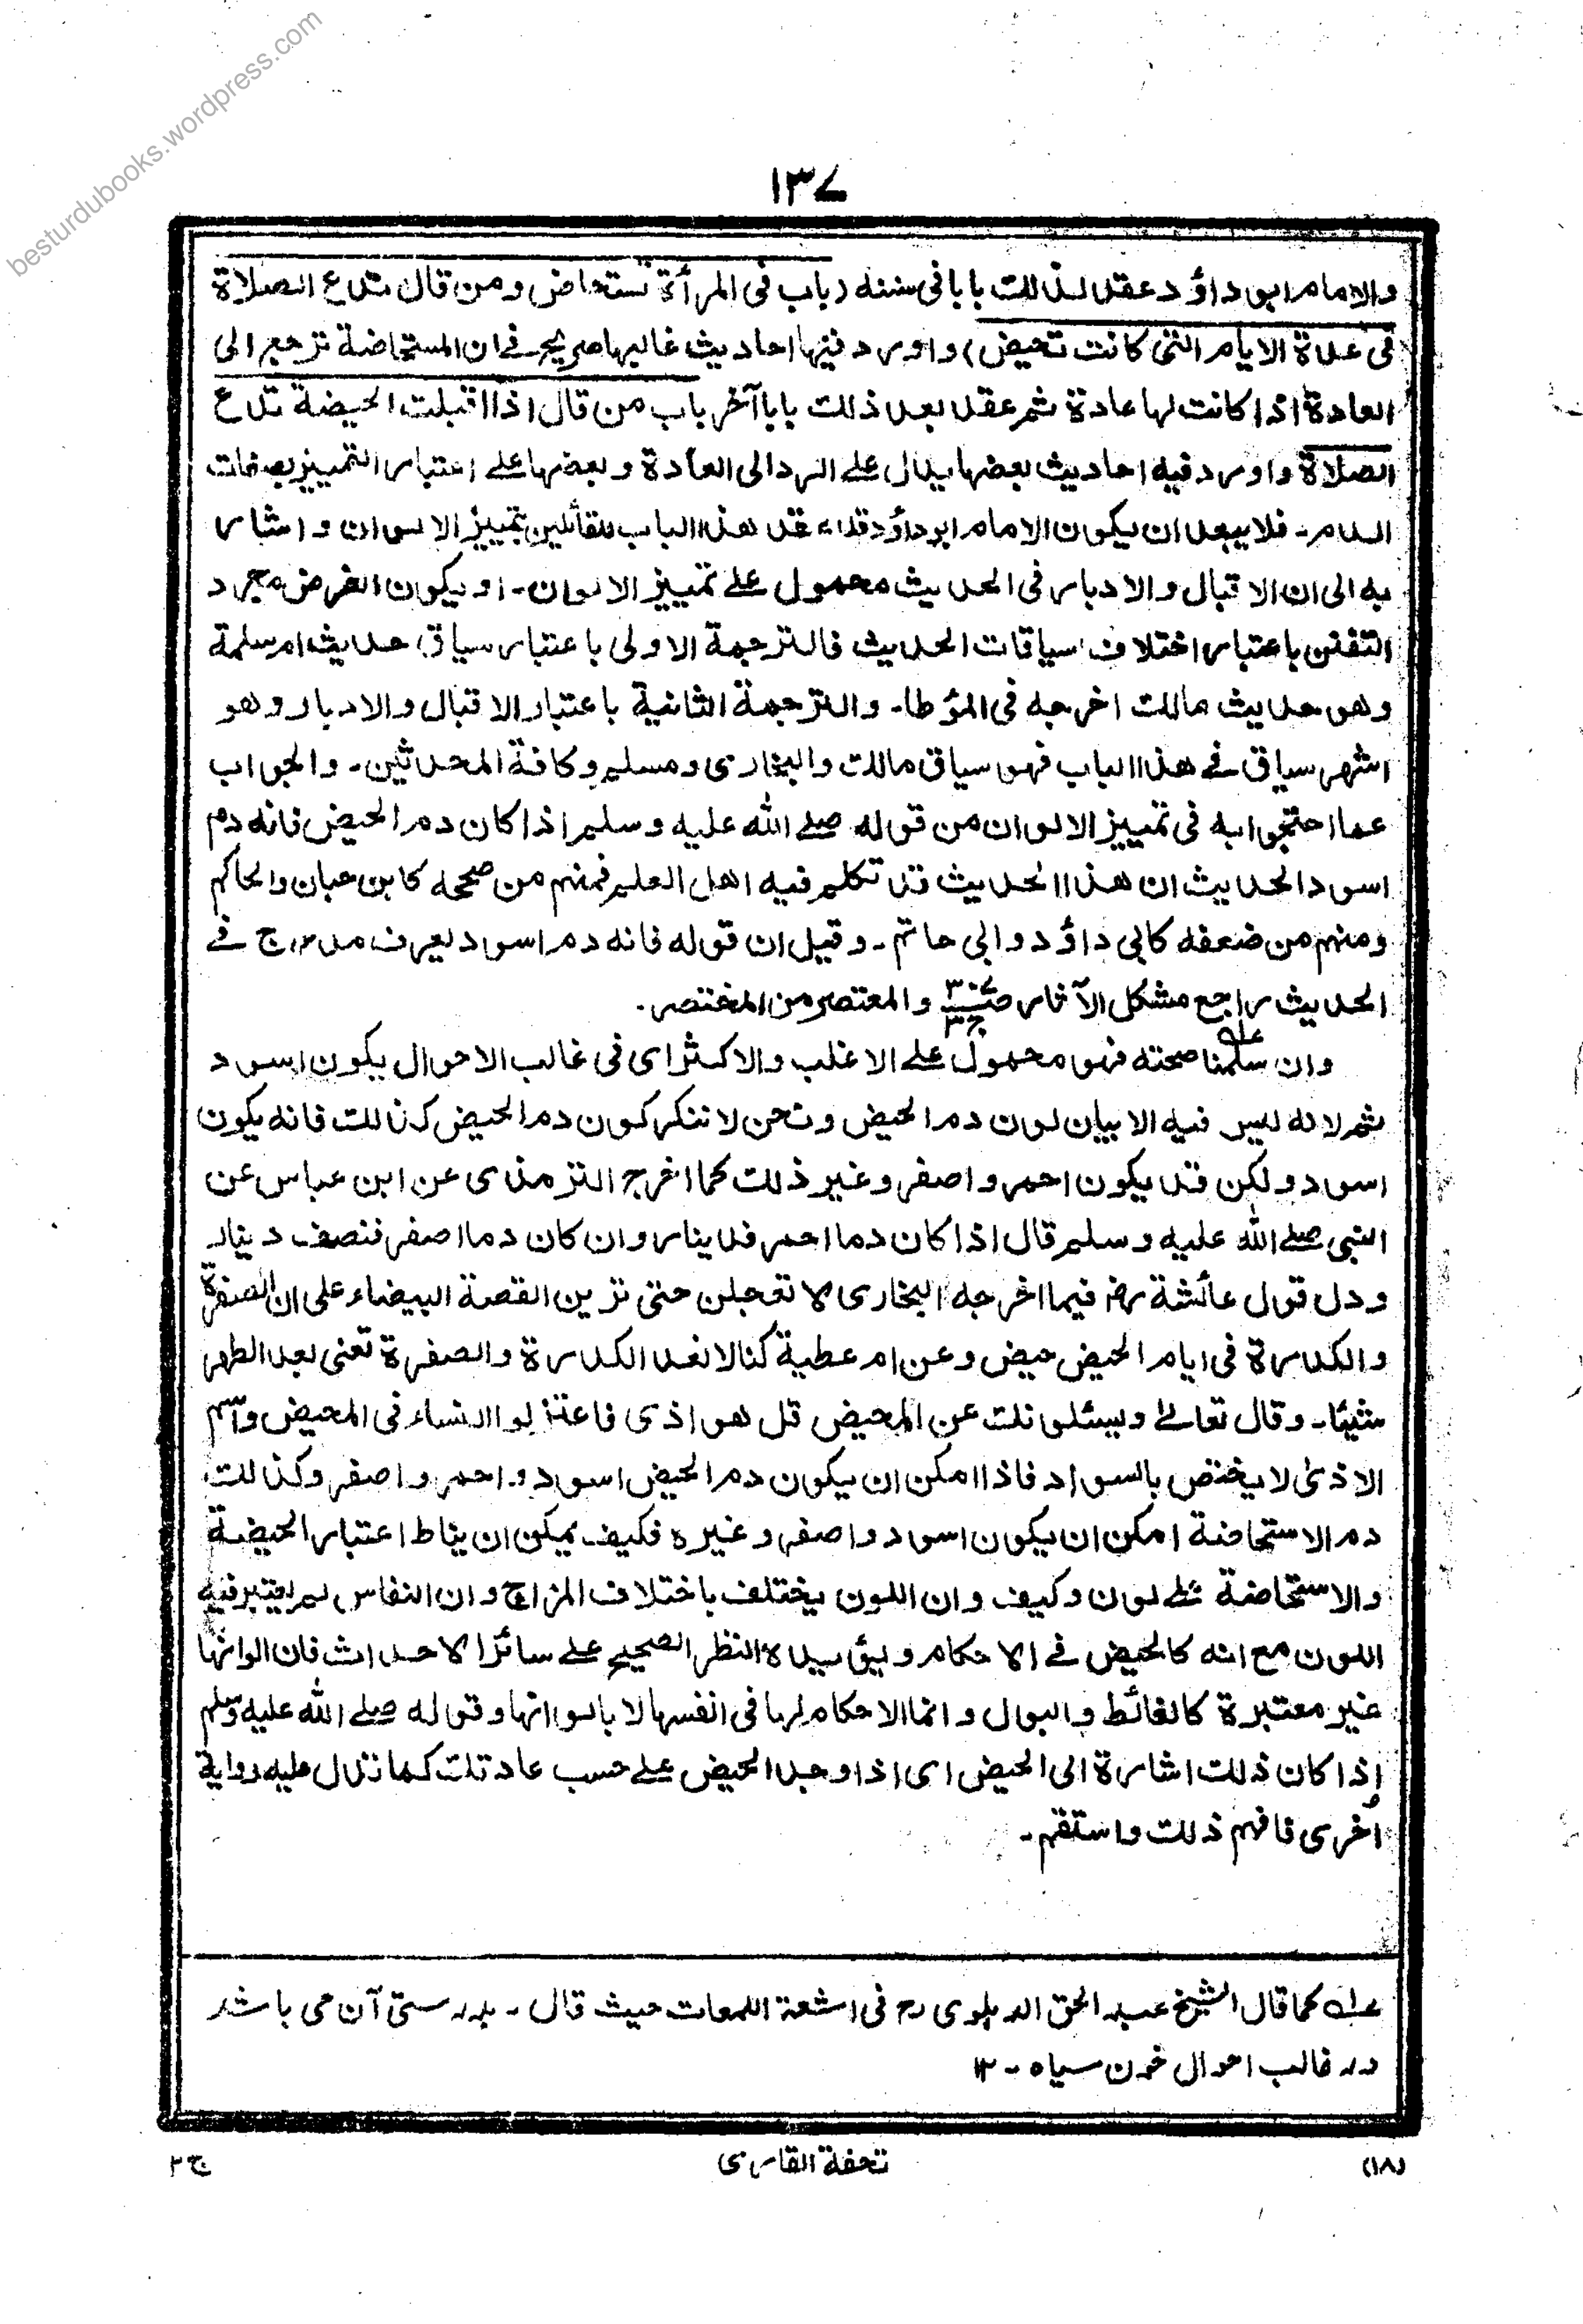 besturdubooks.wordpress.com
١٣٧
والامام ابو داؤد عقد لذلك بابا فى سننه (باب فى المرأة تستحاض ومن قال تدع الصلاة
فى عدة الايام التى كانت تحيض) واورد فيها احاديث غاليها صريح فے ان المستحاضة ترجع الى
العادة اذا كانت لها عادة ثم عقد بعد ذلك بابا آخر باب من قال اذا اقبلت الحيضة تدع
الصلاة واورد فيه احاديث بعضها يدل علے الرد الى العادة وبعضها علے اعتبار التمييز بصفات
الدم۔ فلا يبعد ان يكون الامام ابو داؤد قد عقد هذا الباب للقائلين بتمييز الالوان واشار
به الى ان الاقبال والادبار فى الحديث محمول علے تمييز الالوان۔ او يكون الغرض مجرد
التفنن باعتبار اختلاف سياقات الحديث فالترجمة الاولى باعتبار سياق حديث ام سلمة
وهو حديث مالك اخرجه فى المؤطا۔ والترجمة الثانية باعتبار الاقبال والادبار وهو
اشهر سياق فے هذا الباب فهو سياق مالك والبخارى ومسلم وكافة المحدثين۔ والجواب
عما احتجوا به فى تمييز الالوان من قوله صلے الله عليه وسلم اذا كان دم الحيض فانه دم
اسود الحديث ان هذا الحديث قد تكلم فيه اهل العلم فمنهم من صححه كابن حبان والحاكم
ومنهم من ضعفه كابى داؤد وابى حاتم۔ وقيل ان قوله فانه دم اسود يعرف مدرج فے
الحديث راجع مشكل الآثار ج٣ والمعتصر من المختصر۔
وان سلمنا صحته فهو محمول علے الاغلب والاكثر اى فى غالب الاحوال يكون اسود
ثم لانه ليس فيه الا بيان لون دم الحيض ونحن لا ننكر كون دم الحيض كذلك فانه يكون
اسود ولكن قد يكون احمر واصفر وغير ذلك كما اخرج الترمذى عن ابن عباس عن
النبى صلے الله عليه وسلم قال اذا كان دما احمر فدينار وان كان دما اصفر فنصف دينار
ودل قول عائشة رض فيما اخرجه البخارى لا تعجلن حتى ترين القصة البيضاء على ان الصفرة
والكدرة فى ايام الحيض حيض وعن ام عطية كنا لا نعد الكدرة والصفرة تعنى بعد الطهر
شيئا۔ وقال تعالےٰ ويسئلونك عن المحيض قل هو اذى فاعتزلوا النساء فى المحيض واسم
الاذىٰ لا يختص بالسواد فاذا امكن ان يكون دم الحيض اسود و احمر واصفر وكذلك
دم الاستحاضة امكن ان يكون اسود واصفر وغيره فكيف يمكن ان يناط اعتبار الحيضة
والاستحاضة علے لون وكيف وان اللون يختلف باختلاف المزاج وان النفاس لم يعتبر فيه
اللون مع انه كالحيض فے الاحكام ويؤيده النظر الصحيح علے سائر الاحداث فان الوانها
غير معتبرة كالغائط والبول وانما الاحكام لها فى انفسها لا بالوانها وقوله صلے الله عليه وسلم
اذا كان ذلك اشارة الى الحيض اى اذا وجد الحيض علے حسب عادتك كما تدل عليه رواية
اُخرى فافهم ذلك واستقم۔
عـ١ كما قال الشيخ عبد الحق الدهلوى رح فى اشعة اللمعات حيث قال۔ بدرستى آن مى باشد
در غالب احوال خون سياه۔ ١٢
(١٨) تحفة القارى ج٢